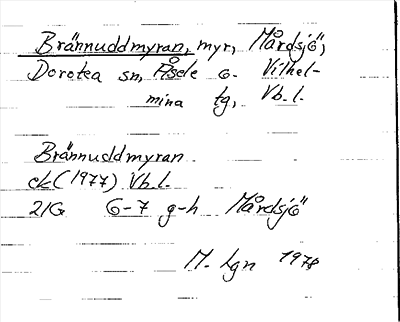 Brännuddmyran, myr, Mårdsjö,
Dorotea sn, Åsele o. Vilhel-
mina tg, Vb.l.
Brännuddmyran
ek (1977) Vb.l.
21G 6-7 g-h Mårdsjö
M. Lgn 1978